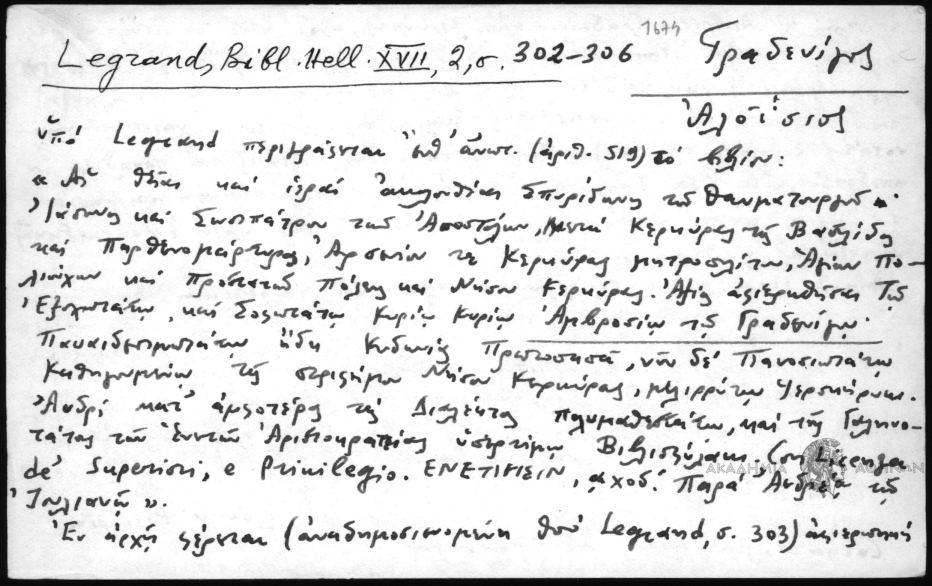 1674
Legrand, Bibl. Hell. XVII, 2, σ. 302-306
Γραδενίγος
Ἀλοΐσιος
ὑπό Legrand περιγράφεται (ἀριθ. 519) τό βιβλίον:
« Αἱ θεῖαι καί ἱεραί ἀκολουθίαι Σπυρίδωνος τοῦ θαυματουργοῦ
Ἰάσωνος καί Σωσιπάτρου τῶν Ἀποστόλων, Μετά Κερκύρας τῆς Βασιλίδος
καί Παρθενομάρτυρος, Ἀρσενίου τε Κερκύρας μητροπολίτου, Ἁγίων Πο-
λιούχων καί Προστατῶν Πόλεως καί Νήσου Κερκύρας. ἀφιερωθεῖσαι Τῷ
Ἐξοχωτάτῳ, καί Σοφωτάτῳ Κυρίῳ Κυρίῳ Ἀμβροσίῳ τῷ Γραδενίγῳ
Παναιδεσιμωτάτῳ ἤδη Κυδωνίας Πρωτοπαπᾷ, νῦν δέ Πανοσιωτάτῳ
Καθηγουμένῳ τῆς Νήσου Κερκύρας,
Ἀνδρί κατ' ἀμφοτέρας τάς Διαλέκτους πολυμαθεστάτῳ, καί τῆς Γαληνο-
τάτης τῶν Ἑνετῶν Ἀριστοκρατείας Βιβλιοφύλακι. Con Licenza
de' Superiori, e Privilegio. ΕΝΕΤΙΗΣΙΝ, ͵αχοδ. Παρά Ἀνδρέᾳ τῷ
Ἰουλιανῷ ».
Ἐν ἀρχῇ φέρεται (ἀναδημοσιευομένη ὑπό Legrand, σ. 303) ἀφιερωτική
ΑΚΑΔΗΜΙΑ ΑΘΗΝΩΝ